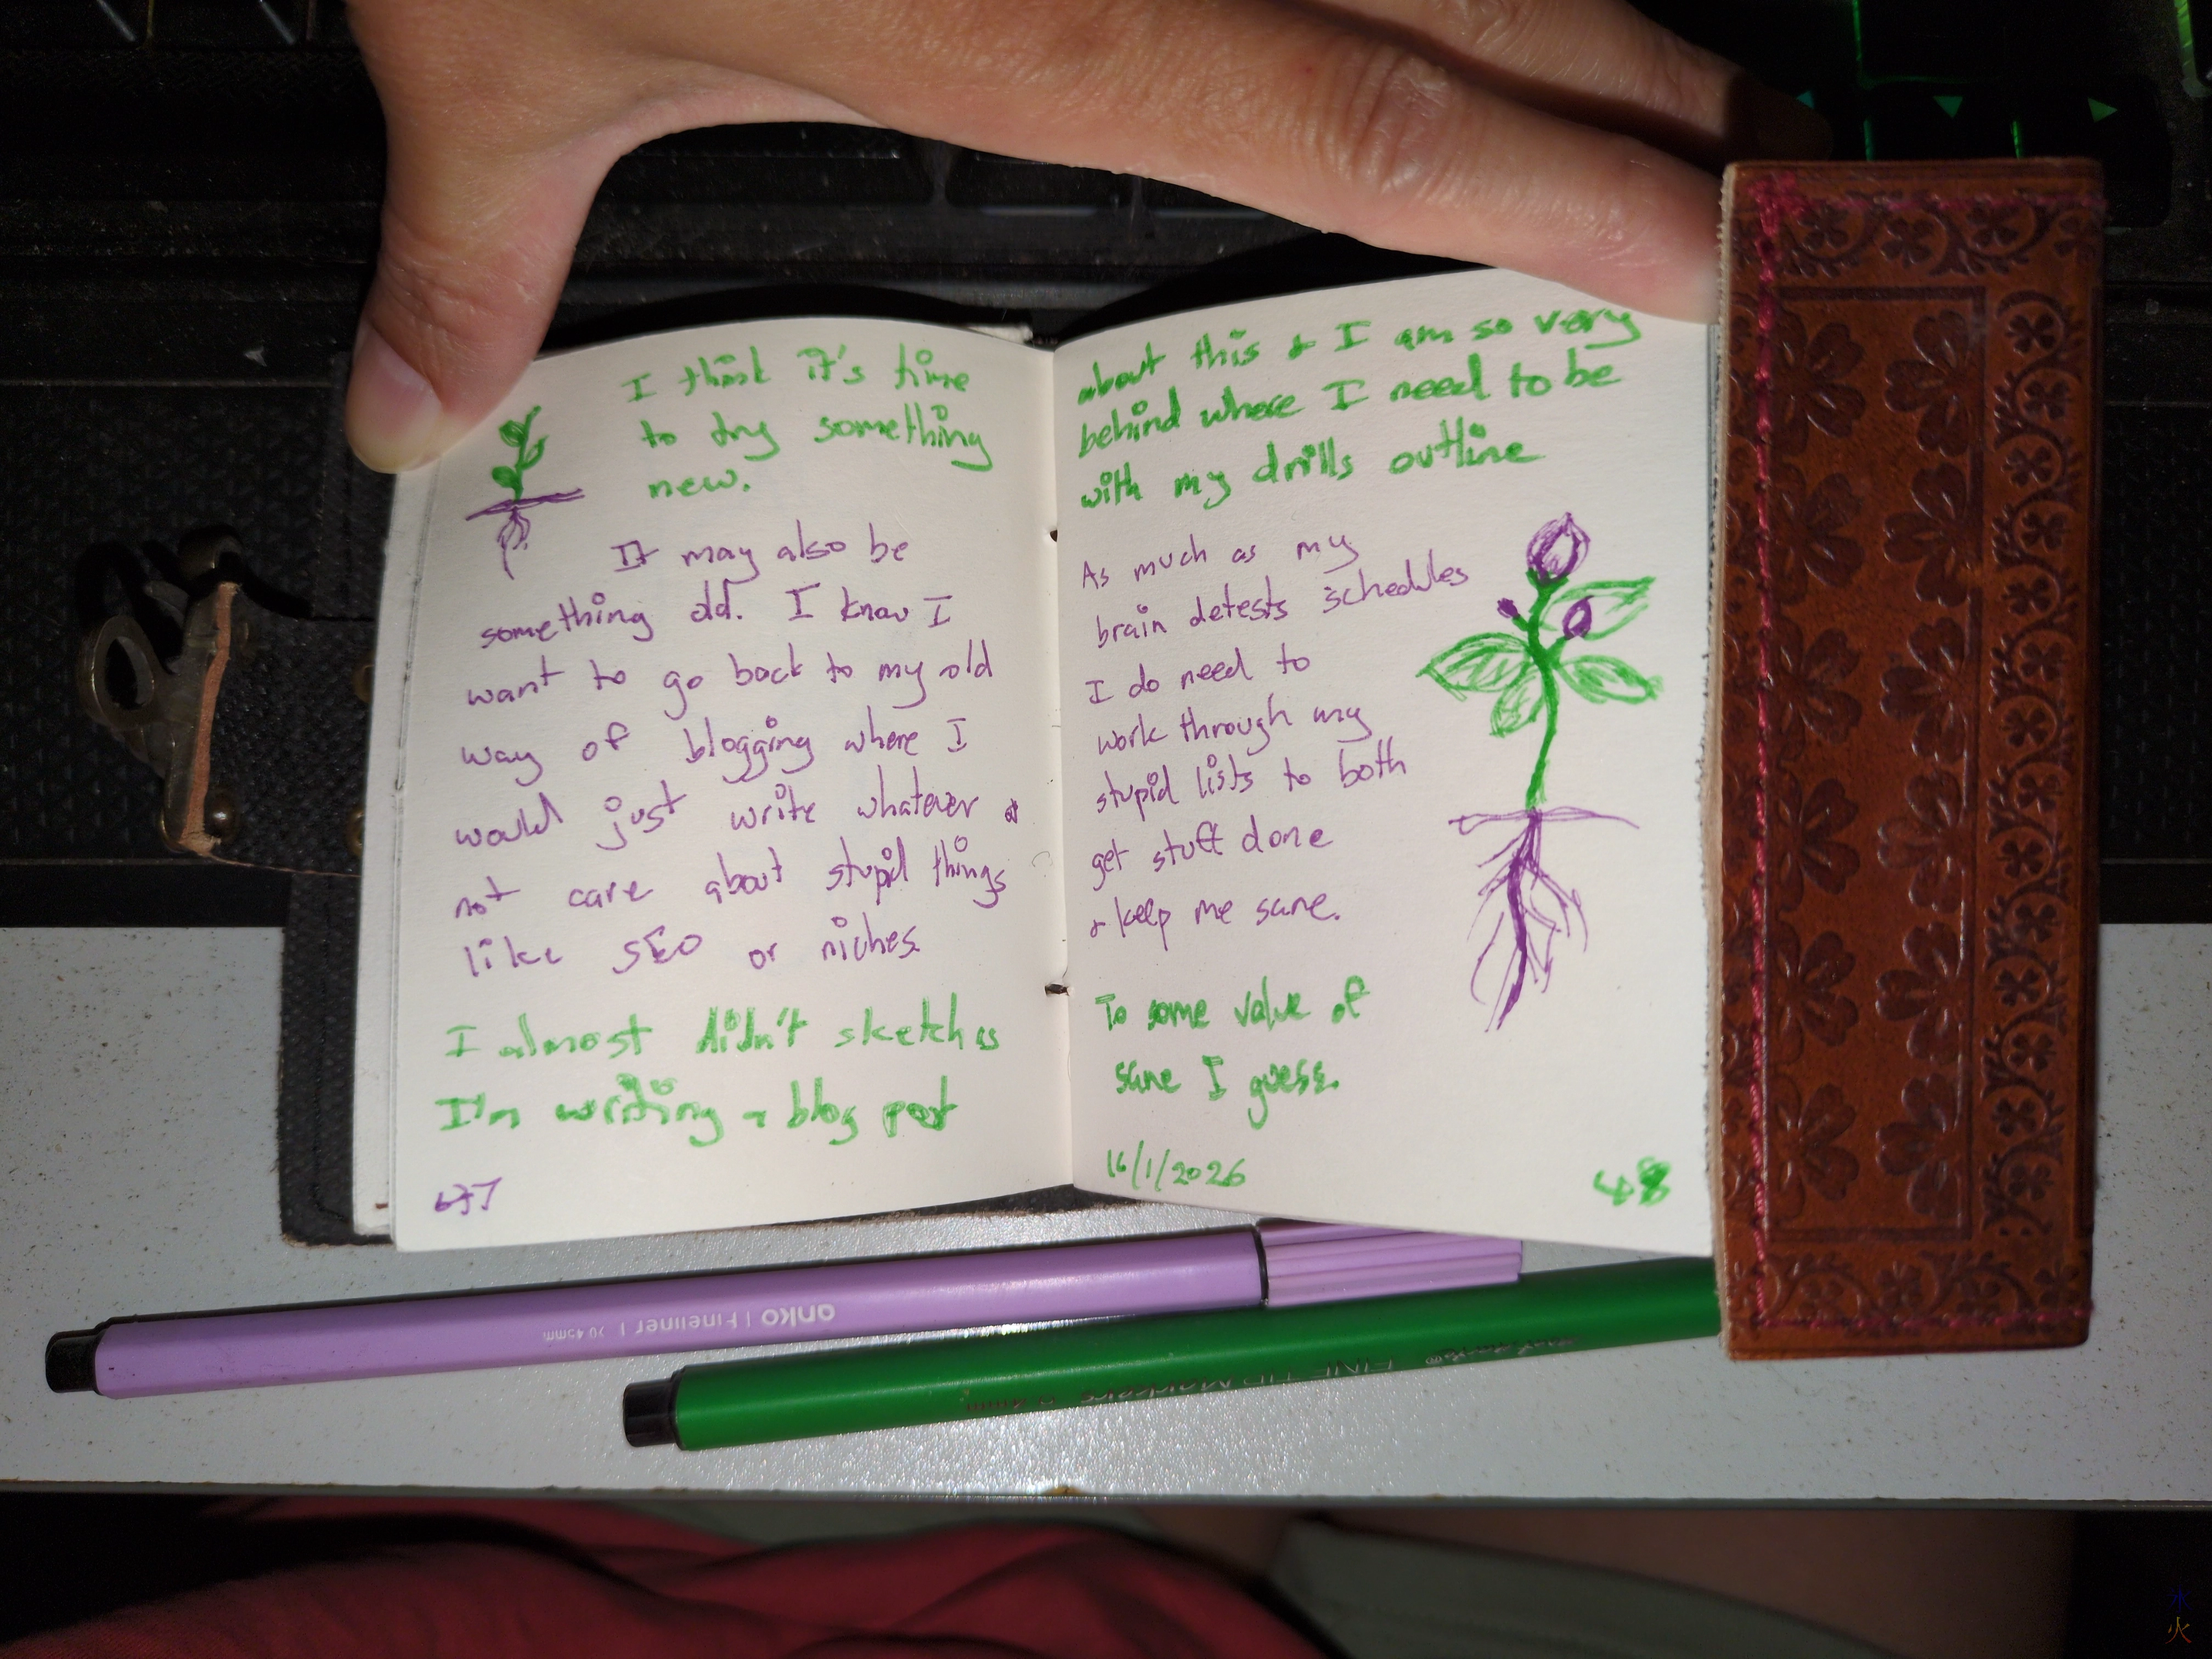 I think it's time
to try something
new.
It may also be
something old. I know I
want to go back to my old
way of blogging where I
would just write whatever &
not care about stupid things
like SEO or niches.
I almost didn't sketch as
I'm writing a blog post
about this & I am so very
behind where I need to be
with my drills outline
As much as my
brain detests schedules
I do need to
work through my
stupid lists to both
get stuff done
& keep me sane.
To some value of
sane I guess.
16/1/2026
48
anko | Fineliner |
FINE TIP Markers
水
火